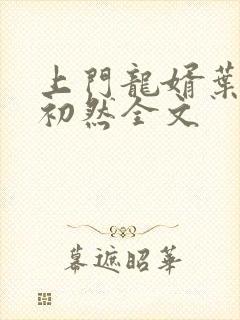 上門龍婿葉
初然全文
幕遮昭華